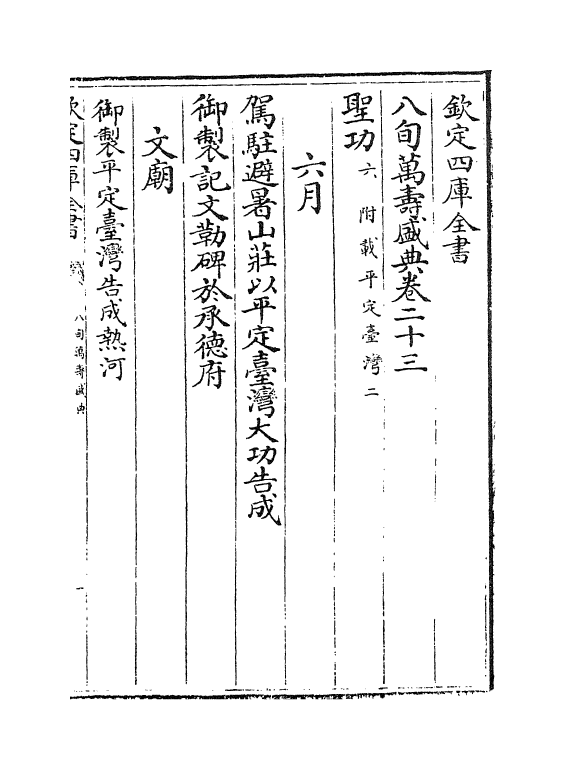 欽定四庫全書
八旬萬壽盛典卷二十三
聖功六 附載平定臺灣二
六月
駕駐避暑山莊以平定臺灣大功告成
御製記文勒碑於承德府
文廟
御製平定臺灣告成熱河
欽定四庫全書
八旬萬壽盛典
一